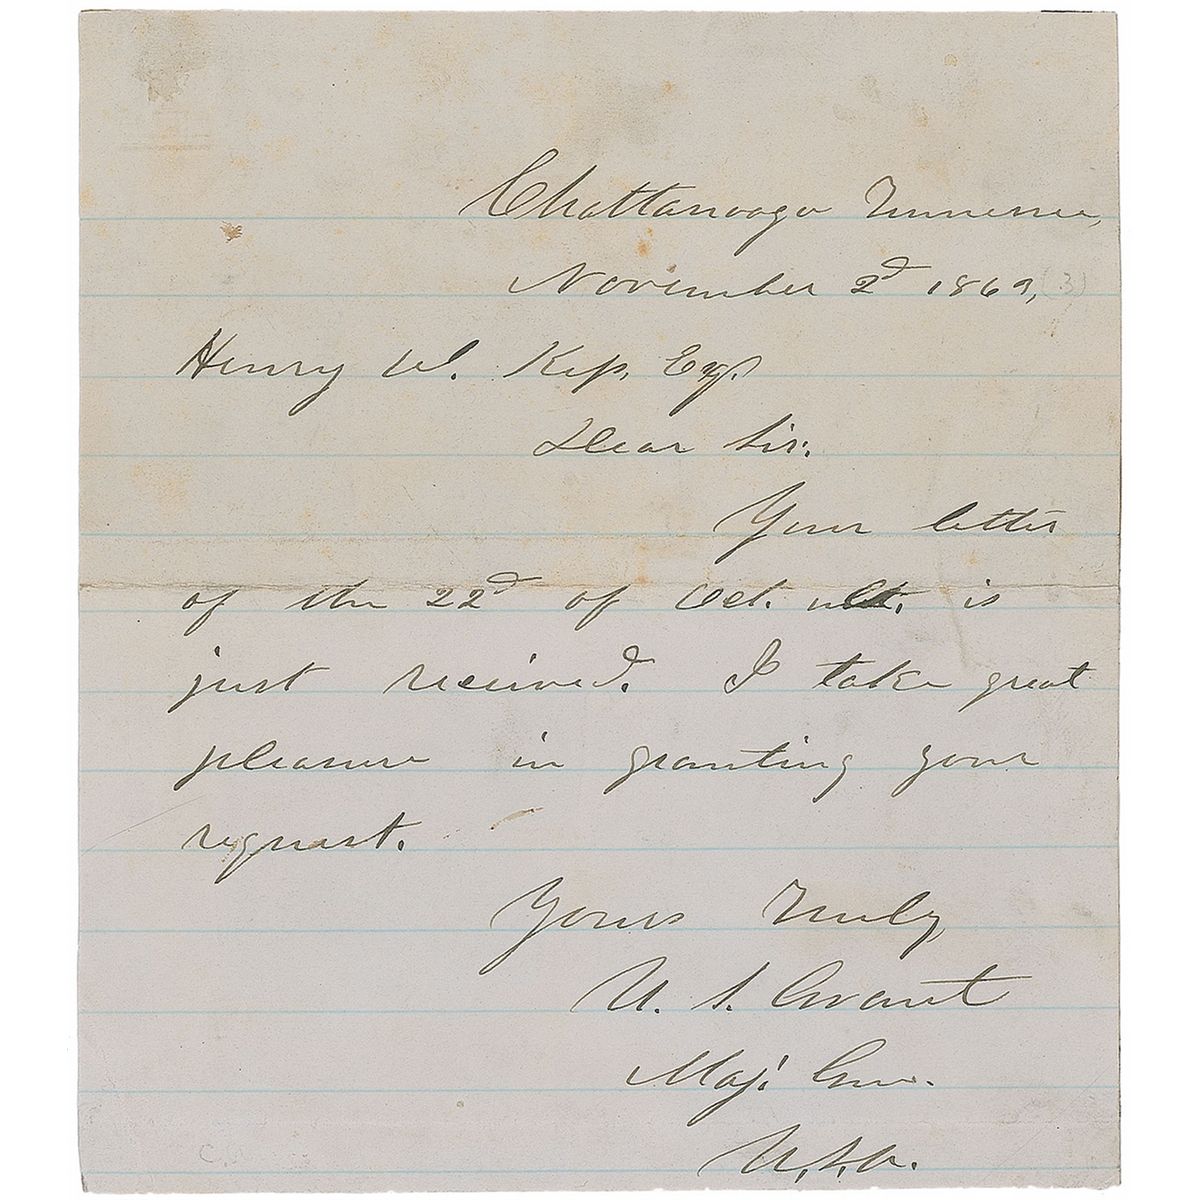 Chattanooga Tennessee,
November 2d 1869, (3)
Henry W. Kip, Esq.
Dear Sir:
Your letter
of the 22d of Oct. ult. is
just received. I take great
pleasure in granting your
request.
Yours Truly
U. S. Grant
Maj. Gen.
U.S.A.